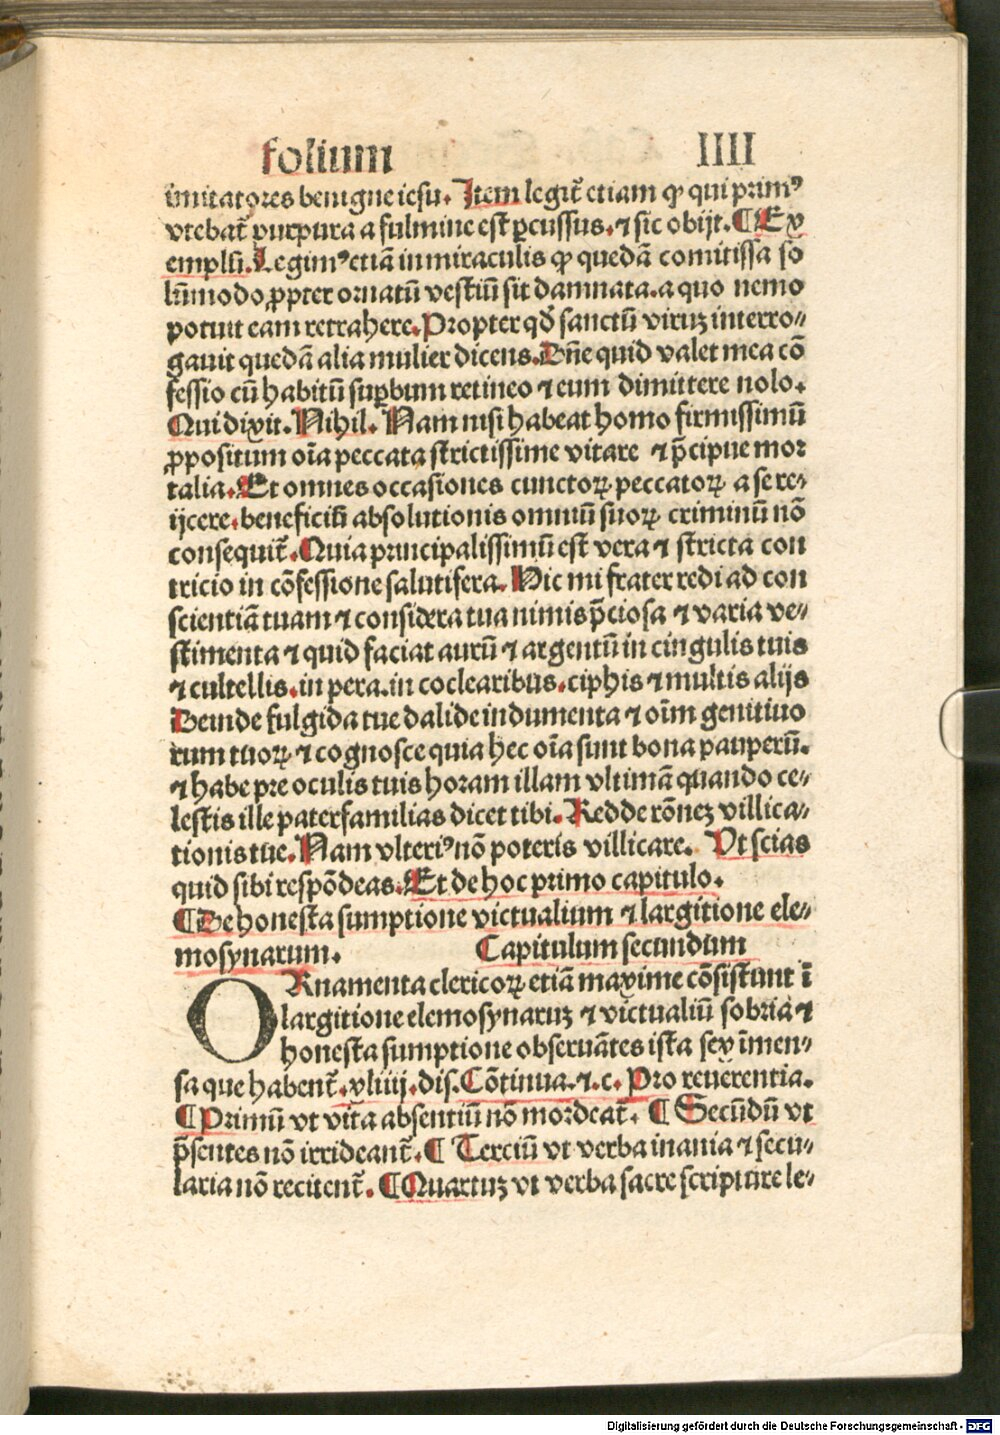 folium IIII
imitatores benigne iesu. Item legit̄ etiam ꝙ qui primꝰ
vtebat̄ purpura a fulmine est ꝑcussus. ⁊ sic obijt. ¶ Ex
emplū. Legimꝰ etiā in miraculis ꝙ quedā comitissa so
lūmodo ꝓpter ornatū vestiū sit damnata. a quo nemo
potuit eam retrahere. Propter qđ sanctū viruꝫ interro⸗
gauit quedā alia mulier dicens. Dn̄e quid valet mea cō
fessio cū habitū suꝑbum retineo ⁊ eum dimittere nolo.
Qui dixit. Nihil. Nam nisi habeat homo firmissimū
ꝓpositum oīa peccata strictissime vitare ⁊ p̄cipue mor
talia. Et omnes occasiones cunctoꝝ peccatoꝝ a se re⸗
ijcere. beneficiū absolutionis omniū suoꝝ criminū nō
consequit̄. Quia principalissimū est vera ⁊ stricta con
tricio in cōfessione salutifera. Hic mi frater redi ad con
scientiā tuam ⁊ considera tua nimis p̄ciosa ⁊ varia ve⸗
stimenta ⁊ quid faciat aurū ⁊ argentū in cingulis tuis
⁊ cultellis. in pera. in coclearibus. ciphis ⁊ multis alijs
Deinde fulgida tue dalide indumenta ⁊ oīm genitiuo
rum tuoꝝ ⁊ cognosce quia hec oīa sunt bona pauperū.
⁊ habe pre oculis tuis horam illam vltimā quando ce⸗
lestis ille paterfamilias dicet tibi. Redde rōneꝫ villica⸗
tionis tue. Nam vlteriꝰ nō poteris villicare. Vt scias
quid sibi respōdeas. Et de hoc primo capitulo.
¶ De honesta sumptione victualium ⁊ largitione ele⸗
mosynarum. Capitulum secundum
ORnamenta clericoꝝ etiā maxime cōsistunt ī
largitione elemosynaruꝫ ⁊ victualiū sobria ⁊
honesta sumptione obseruātes ista sex īmen⸗
sa que habent̄. xliiij. dis. Cōtinua. ⁊. c. Pro reuerentia.
¶ Primū vt vita absentiū nō mordeat̄. ¶ Secūdū vt
p̄sentes nō irrideant̄. ¶ Terciū vt verba inania ⁊ secu⸗
laria nō recitent̄. ¶ Quartuꝫ vt verba sacre scripture le⸗
Digitalisierung gefördert durch die Deutsche Forschungsgemeinschaft - DFG